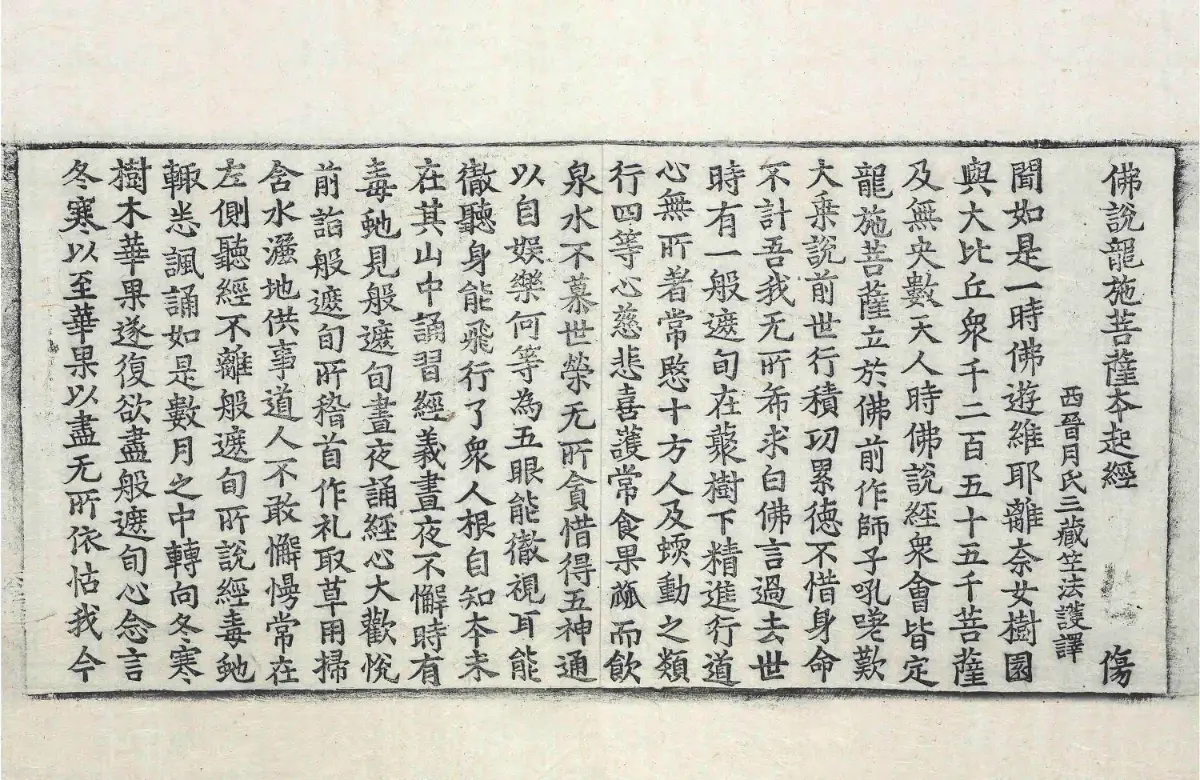 佛說龍施菩薩本起經 傷
西晉月氏三藏竺法護譯
聞如是一時佛遊維耶離奈女樹園
與大比丘衆千二百五十五千菩薩
及無央數天人時佛說經衆會皆定
龍施菩薩立於佛前作師子吼嗟歎
大乗說前世行積功累德不惜身命
不計吾我无所希求白佛言過去世
時有一般遮旬在藂樹下精進行道
心無所著常愍十方人及蝡動之類
行四等心慈悲喜護常食果蓏而飲
泉水不慕世榮无所貪惜得五神通
以自娛樂何等為五眼能徹視耳能
徹聽身能飛行了衆人根自知本末
在其山中誦習經義晝夜不懈時有
毒虵見般遮旬晝夜誦經心大歡悅
前詣般遮旬所稽首作礼取草用掃
含水灑地供事道人不敢懈慢常在
左側聽經不離般遮旬所說經毒虵
輙悉諷誦如是數月之中轉向冬寒
樹木華果遂復欲盡般遮旬心念言
冬寒以至華果以盡无所依怙我今